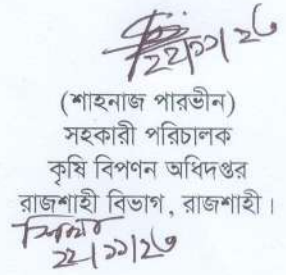 ২২/১১/২৩
(শাহনাজ পারভীন)
সহকারী পরিচালক
কৃষি বিপণন অধিদপ্তর
রাজশাহী বিভাগ, রাজশাহী।
২২/১১/২৩